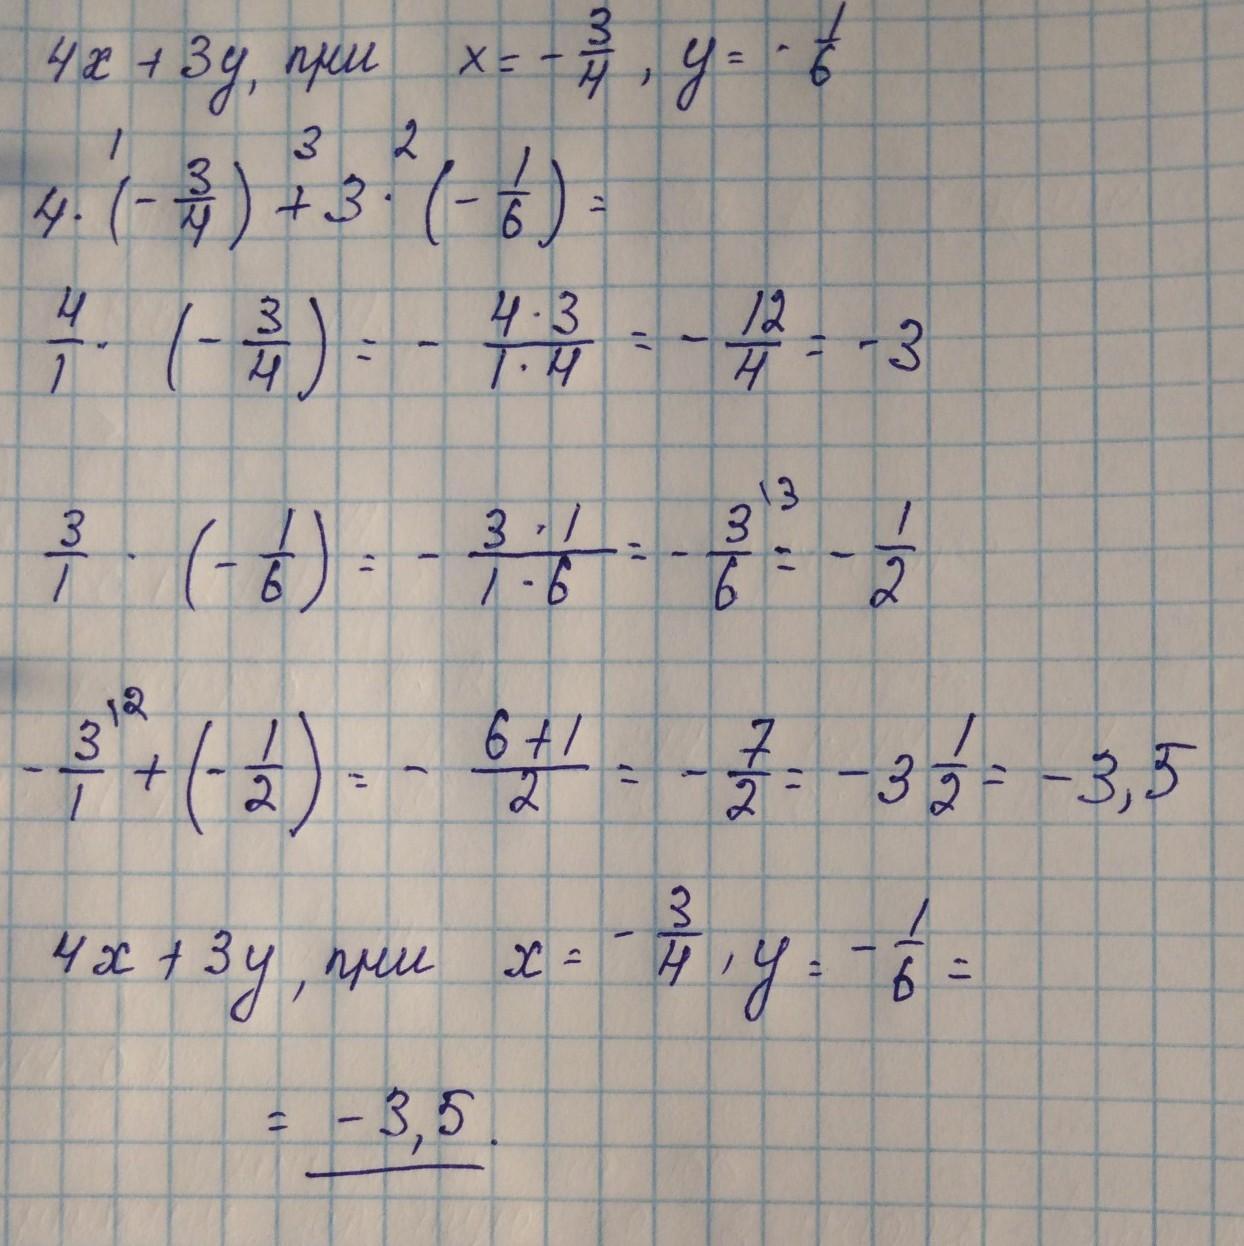 4x + 3y, при x = - 3/4 , y = - 1/6
1 3 2
4 · (- 3/4) + 3 · (- 1/6) =
4/1 · (- 3/4) = - 4·3/1·4 = - 12/4 = -3
3/1 · (- 1/6) = - 3·1/1·6 = - 3/6 \3 = - 1/2
- 3/1 \2 + (- 1/2) = - 6+1/2 = - 7/2 = -3 1/2 = -3,5
4x + 3y, при x = - 3/4 , y = - 1/6 =
= -3,5.